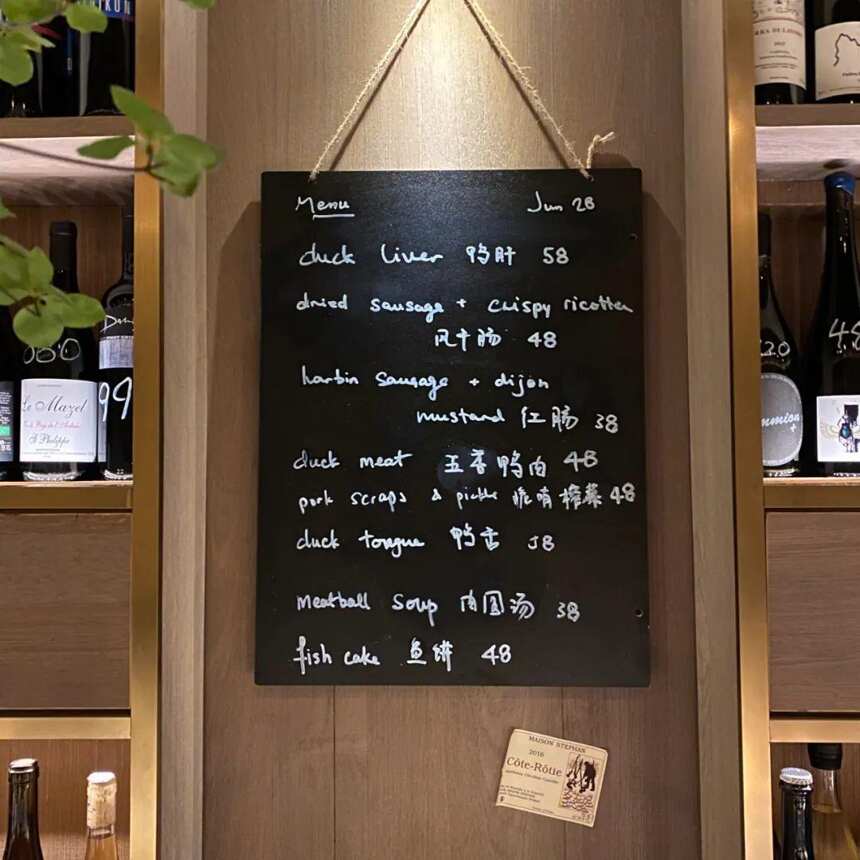 Menu Jun 28
duck liver 鸭肝 58
dried sausage + crispy ricotta
风干肠 48
harbin sausage + dijon
mustard 红肠 38
duck meat 五香鸭肉 48
pork scraps & pickle 脆哨榨菜 48
duck tongue 鸭舌 58
meatball soup 肉圆汤 38
fish cake 鱼饼 48
Le Mazel
Philippe
99
48
mmion
MAISON STEPHAN
2016
Côte-Rôtie